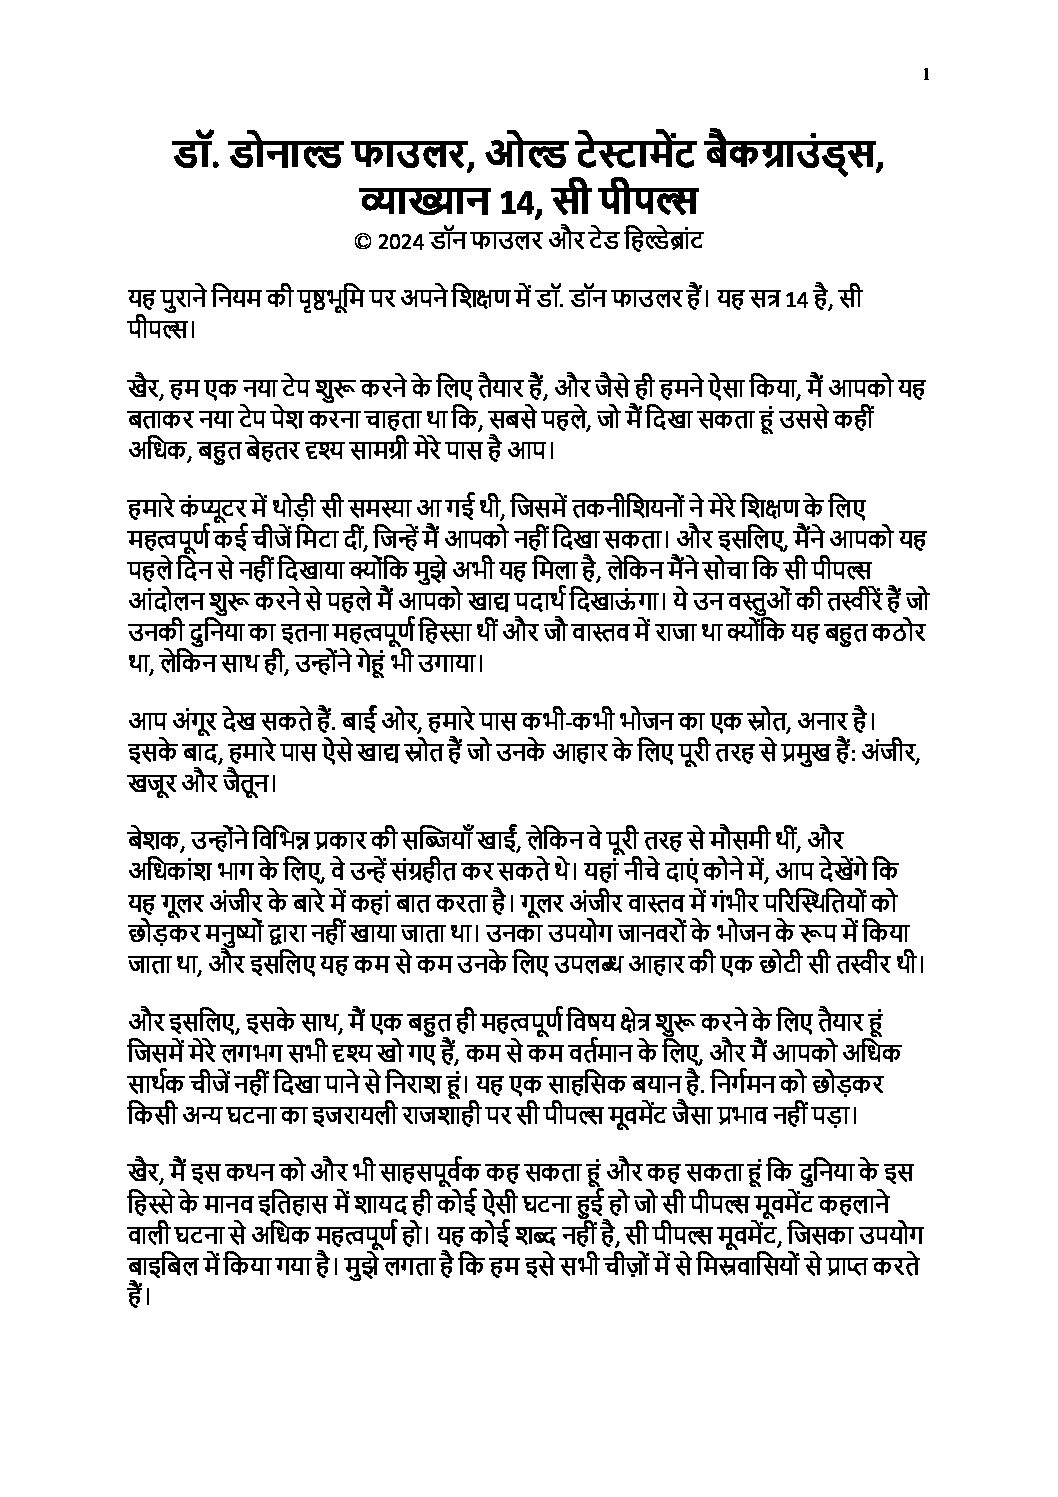 1
डॉ. डोनाल्ड फाउलर, ओल्ड टेस्टामेंट बैकग्राउंड्स,
व्याख्यान 14, सी पीपल्स
© 2024 डॉन फाउलर और टेड हिल्डेब्रांट
यह पुराने नियम की पृष्ठभूमि पर अपने शिक्षण में डॉ. डॉन फाउलर हैं। यह सत्र 14 है, सी
पीपल्स।
खैर, हम एक नया टेप शुरू करने के लिए तैयार हैं, और जैसे ही हमने ऐसा किया, मैं आपको यह
बताकर नया टेप पेश करना चाहता था कि, सबसे पहले, जो मैं दिखा सकता हूं उससे कहीं
अधिक, बहुत बेहतर दृश्य सामग्री मेरे पास है आप।
हमारे कंप्यूटर में थोड़ी सी समस्या आ गई थी, जिसमें तकनीशियनों ने मेरे शिक्षण के लिए
महत्वपूर्ण कई चीजें मिटा दीं, जिन्हें मैं आपको नहीं दिखा सकता। और इसलिए, मैंने आपको यह
पहले दिन से नहीं दिखाया क्योंकि मुझे अभी यह मिला है, लेकिन मैंने सोचा कि सी पीपल्स
आंदोलन शुरू करने से पहले मैं आपको खाद्य पदार्थ दिखाऊंगा। ये उन वस्तुओं की तस्वीरें हैं जो
उनकी दुनिया का इतना महत्वपूर्ण हिस्सा थीं और जौ वास्तव में राजा था क्योंकि यह बहुत कठोर
था, लेकिन साथ ही, उन्होंने गेहूं भी उगाया।
आप अंगूर देख सकते हैं. बाईं ओर, हमारे पास कभी-कभी भोजन का एक स्रोत, अनार है।
इसके बाद, हमारे पास ऐसे खाद्य स्रोत हैं जो उनके आहार के लिए पूरी तरह से प्रमुख हैं: अंजीर,
खजूर और जैतून।
बेशक, उन्होंने विभिन्न प्रकार की सब्जियाँ खाईं, लेकिन वे पूरी तरह से मौसमी थीं, और
अधिकांश भाग के लिए, वे उन्हें संग्रहीत कर सकते थे। यहां नीचे दाएं कोने में, आप देखेंगे कि
यह गूलर अंजीर के बारे में कहां बात करता है। गूलर अंजीर वास्तव में गंभीर परिस्थितियों को
छोड़कर मनुष्यों द्वारा नहीं खाया जाता था। उनका उपयोग जानवरों के भोजन के रूप में किया
जाता था, और इसलिए यह कम से कम उनके लिए उपलब्ध आहार की एक छोटी सी तस्वीर थी।
और इसलिए, इसके साथ, मैं एक बहुत ही महत्वपूर्ण विषय क्षेत्र शुरू करने के लिए तैयार हूं
जिसमें मेरे लगभग सभी दृश्य खो गए हैं, कम से कम वर्तमान के लिए, और मैं आपको अधिक
सार्थक चीजें नहीं दिखा पाने से निराश हूं। यह एक साहसिक बयान है. निर्गमन को छोड़कर
किसी अन्य घटना का इजरायली राजशाही पर सी पीपल्स मूवमेंट जैसा प्रभाव नहीं पड़ा।
खैर, मैं इस कथन को और भी साहसपूर्वक कह सकता हूं और कह सकता हूं कि दुनिया के इस
हिस्से के मानव इतिहास में शायद ही कोई ऐसी घटना हुई हो जो सी पीपल्स मूवमेंट कहलाने
वाली घटना से अधिक महत्वपूर्ण हो। यह कोई शब्द नहीं है, सी पीपल्स मूवमेंट, जिसका उपयोग
बाइबिल में किया गया है। मुझे लगता है कि हम इसे सभी चीज़ों में से मिस्रवासियों से प्राप्त करते
हैं।